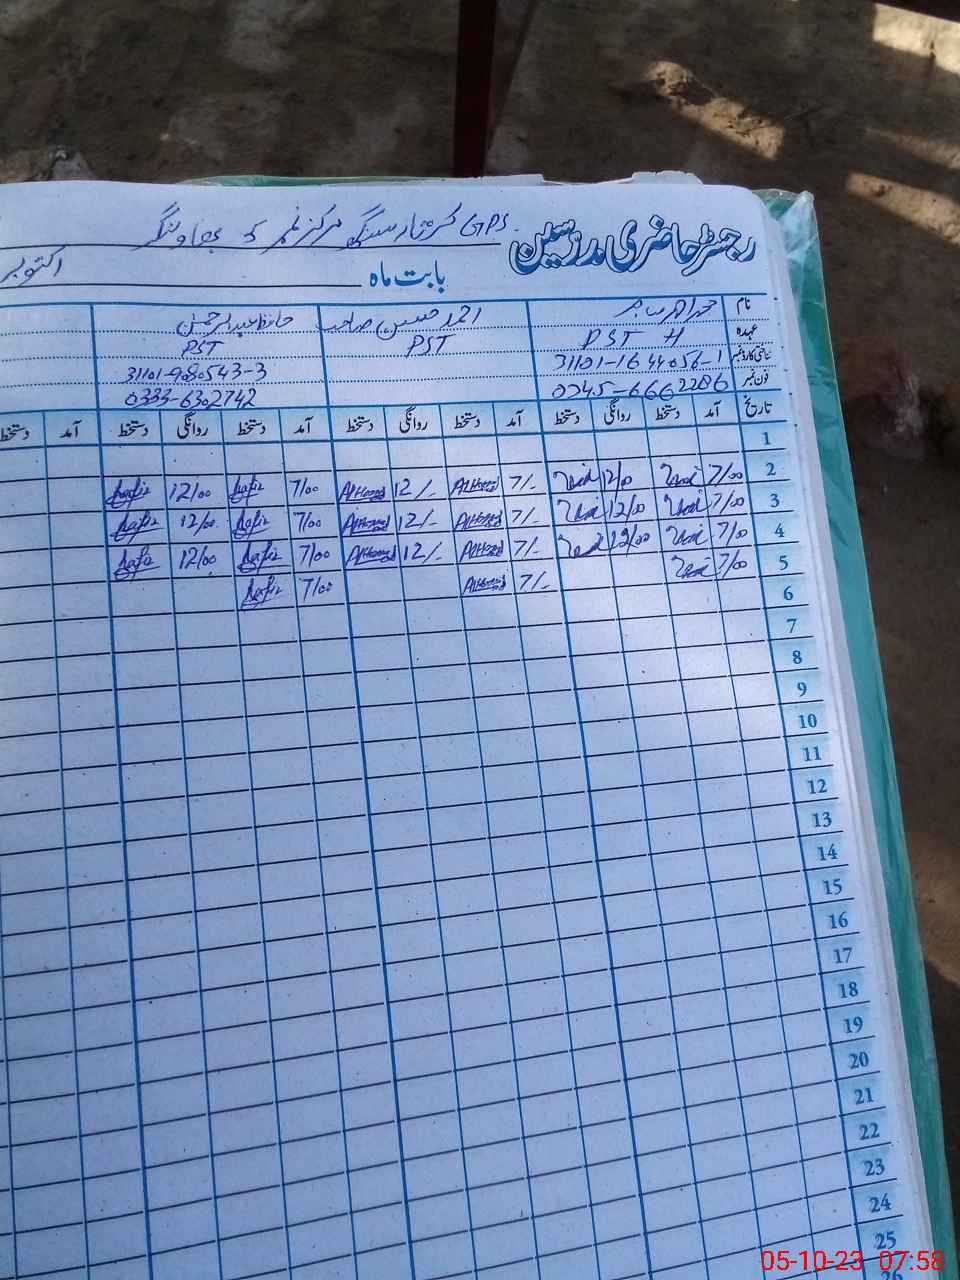 رجسٹر حاضری مدرسین GPS کرتار سنگھ مرکز نمبر 5 بہاولنگر
بابت ماہ اکتوبر
نام احمد حسین صاحب حافظ عبدالرحمن
عہدہ PST H PST PST
شناختی کارڈ نمبر 31101-1644056-1 31101-980543-3
فون نمبر 0345-6662286 0333-6302742
تاریخ آمد دستخط روانگی دستخط آمد دستخط روانگی دستخط آمد دستخط روانگی دستخط آمد دستخط
1
2 7/00 12/00 7/- 12/- 7/00 Hafiz 12/00 Hafiz
3 7/00 12/00 7/- 12/- 7/00 Hafiz 12/00 Hafiz
4 7/00 12/00 7/- 12/- 7/00 Hafiz 12/00 Hafiz
5 7/00 7/- 7/00 Hafiz
6
7
8
9
10
11
12
13
14
15
16
17
18
19
20
21
22
23
24
25
05-10-23 07:58